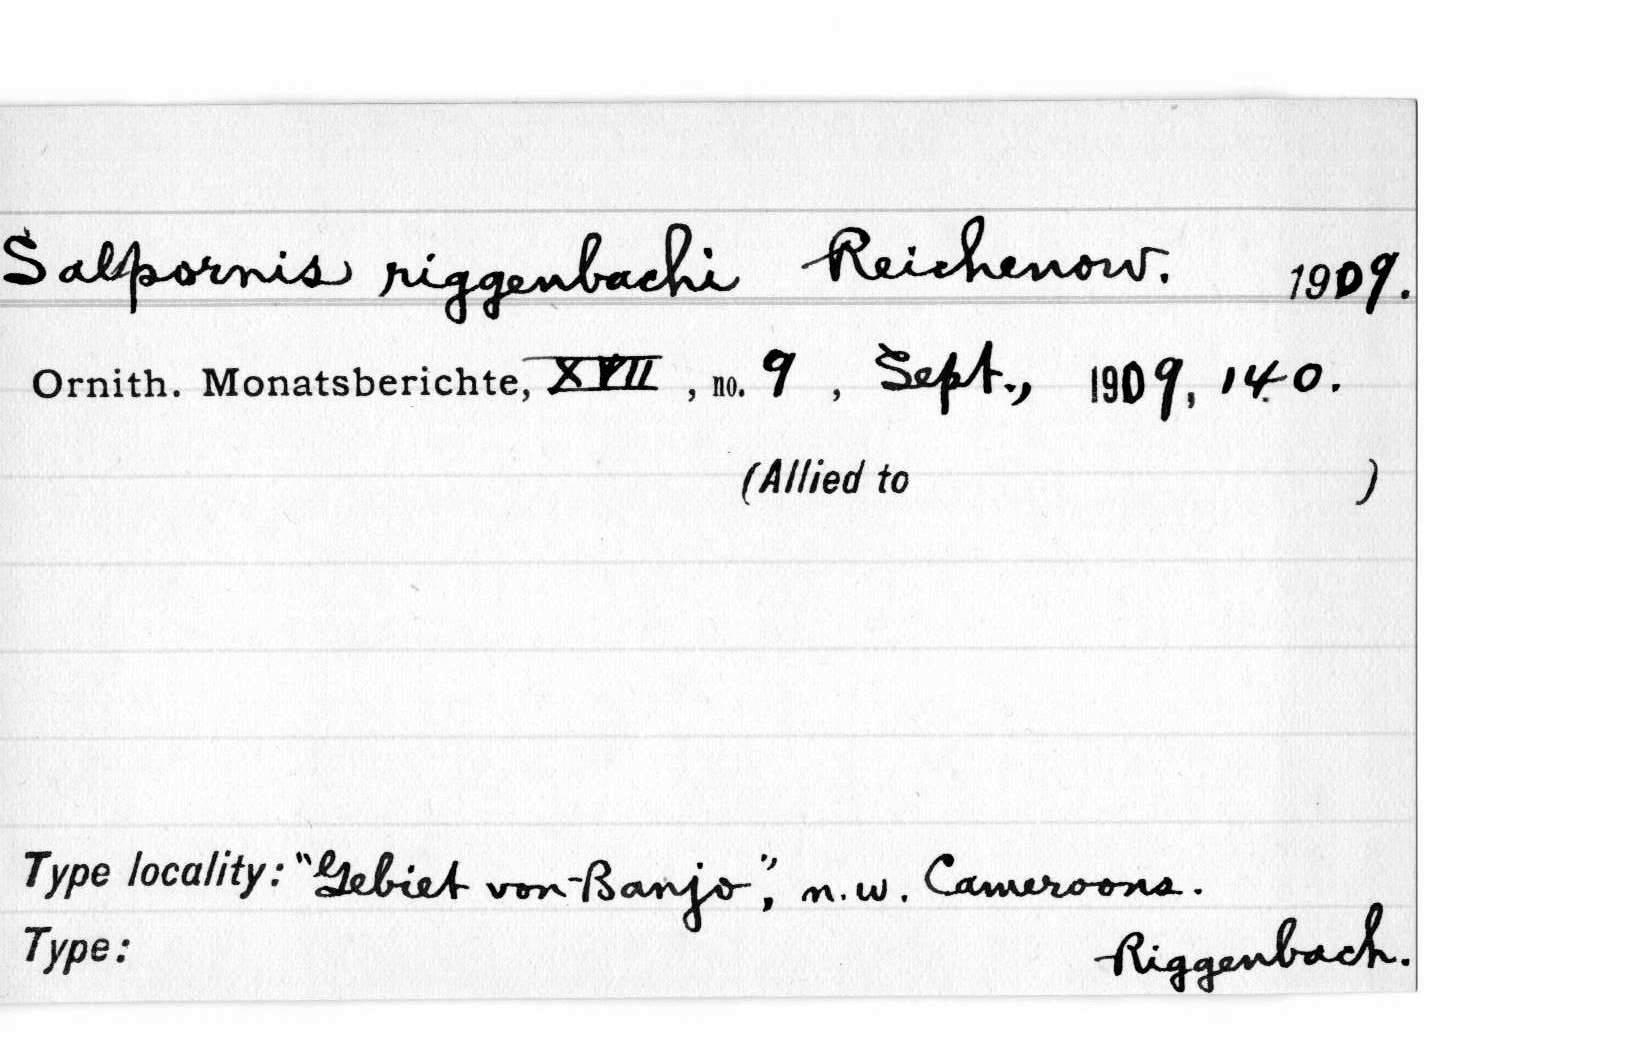 Salpornis riggenbachi Reichenow. 1909.
Ornith. Monatsberichte, XVII, no. 9, Sept., 1909, 140.
(Allied to )
Type locality: "Gebiet von Banjo", n.w. Cameroons.
Type: Riggenbach.